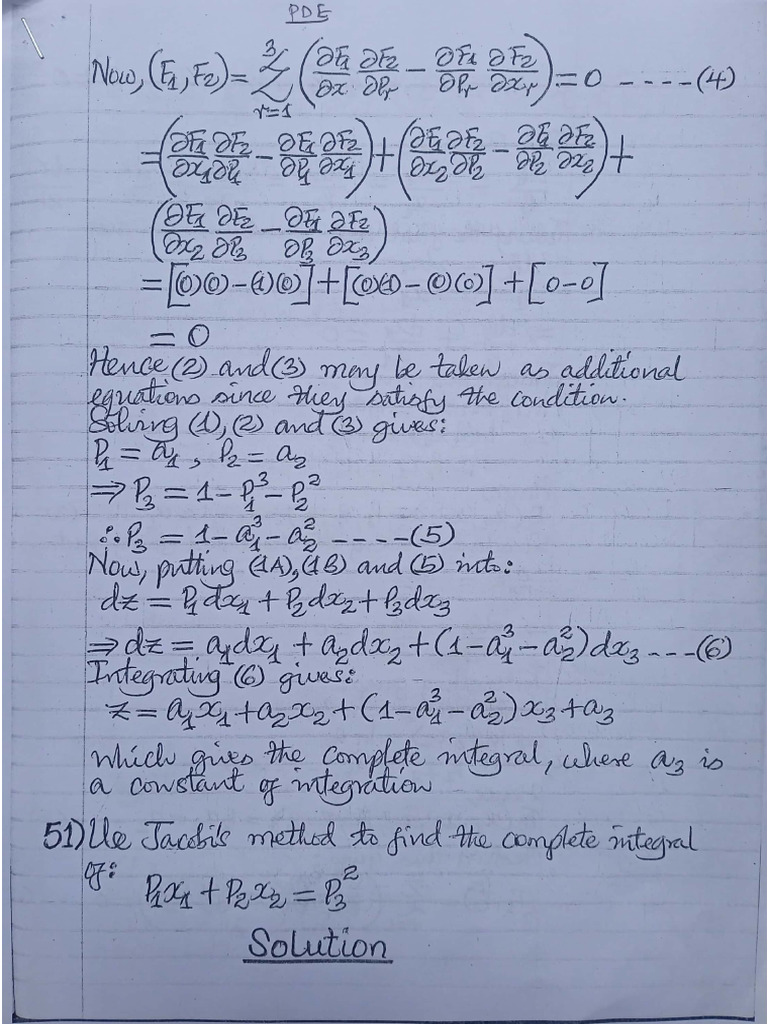 PDE
Now, (F₁, F₂) = ∑_{r=1}^{3} (∂F₁/∂x ∂F₂/∂P_r − ∂F₁/∂P_r ∂F₂/∂x_r) = 0 ----(4)
= (∂F₁/∂x₁ ∂F₂/∂P₁ − ∂F₁/∂P₁ ∂F₂/∂x₁) + (∂F₁/∂x₂ ∂F₂/∂P₂ − ∂F₁/∂P₂ ∂F₂/∂x₂) +
(∂F₁/∂x₂ ∂F₂/∂P₃ − ∂F₁/∂P₃ ∂F₂/∂x₃)
= [(0)(0) − (1)(0)] + [(0)(1) − (0)(0)] + [0−0]
= 0
Hence (2) and (3) may be taken as additional
equations since they satisfy the condition.
Solving (1), (2) and (3) gives:
P₁ = a₁, P₂ = a₂
⇒ P₃ = 1 − P₁³ − P₂²
∴ P₃ = 1 − a₁³ − a₂² ----(5)
Now, putting (1A), (1B) and (5) into:
dz = P₁dx₁ + P₂dx₂ + P₃dx₃
⇒ dz = a₁dx₁ + a₂dx₂ + (1 − a₁³ − a₂²)dx₃ ---(6)
Integrating (6) gives:
z = a₁x₁ + a₂x₂ + (1 − a₁³ − a₂²)x₃ + a₃
which gives the complete integral, where a₃ is
a constant of integration
51) Use Jacobi's method to find the complete integral
of:
P₁x₁ + P₂x₂ = P₃²
Solution